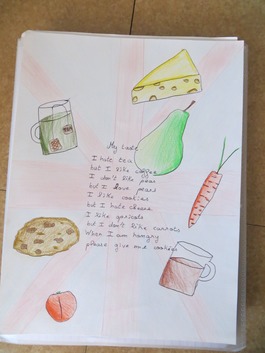 My taste
I hate tea
but I like coffee
I don't like peas
but I love pears
I like cookies
but I hate cheese
I like apricots
but I don't like carrots
When I am hungry
please give me cookies